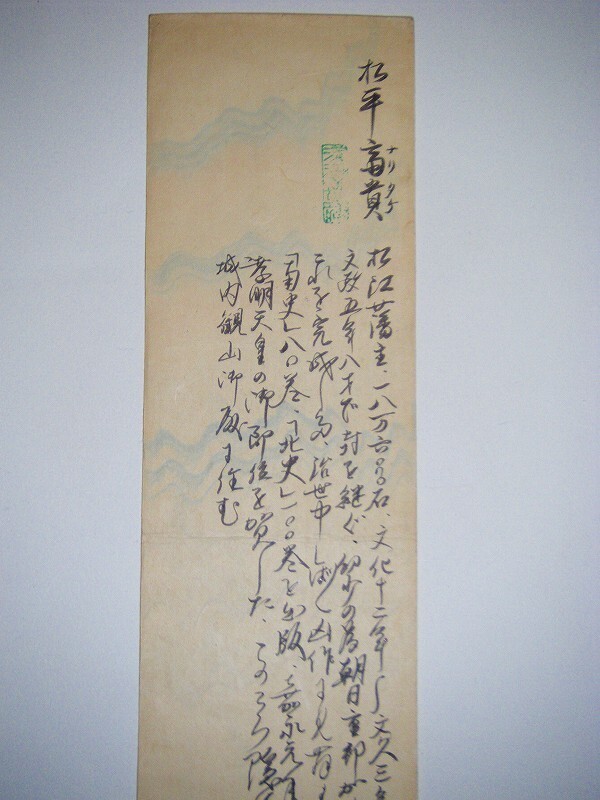 松平斎貴
ナリタケ
松江藩主、一八万六〇〇〇石、文化十二年〜文久三
文政五年八才で封を継ぐ、幼少の為朝日重邦が
これを完成した、治世中しばしば凶作に見舞
「南史」八〇巻、「北史」一〇〇巻を出版、嘉永元
孝明天皇の御即位を賀した、このころ隠
城内観山御殿に住む